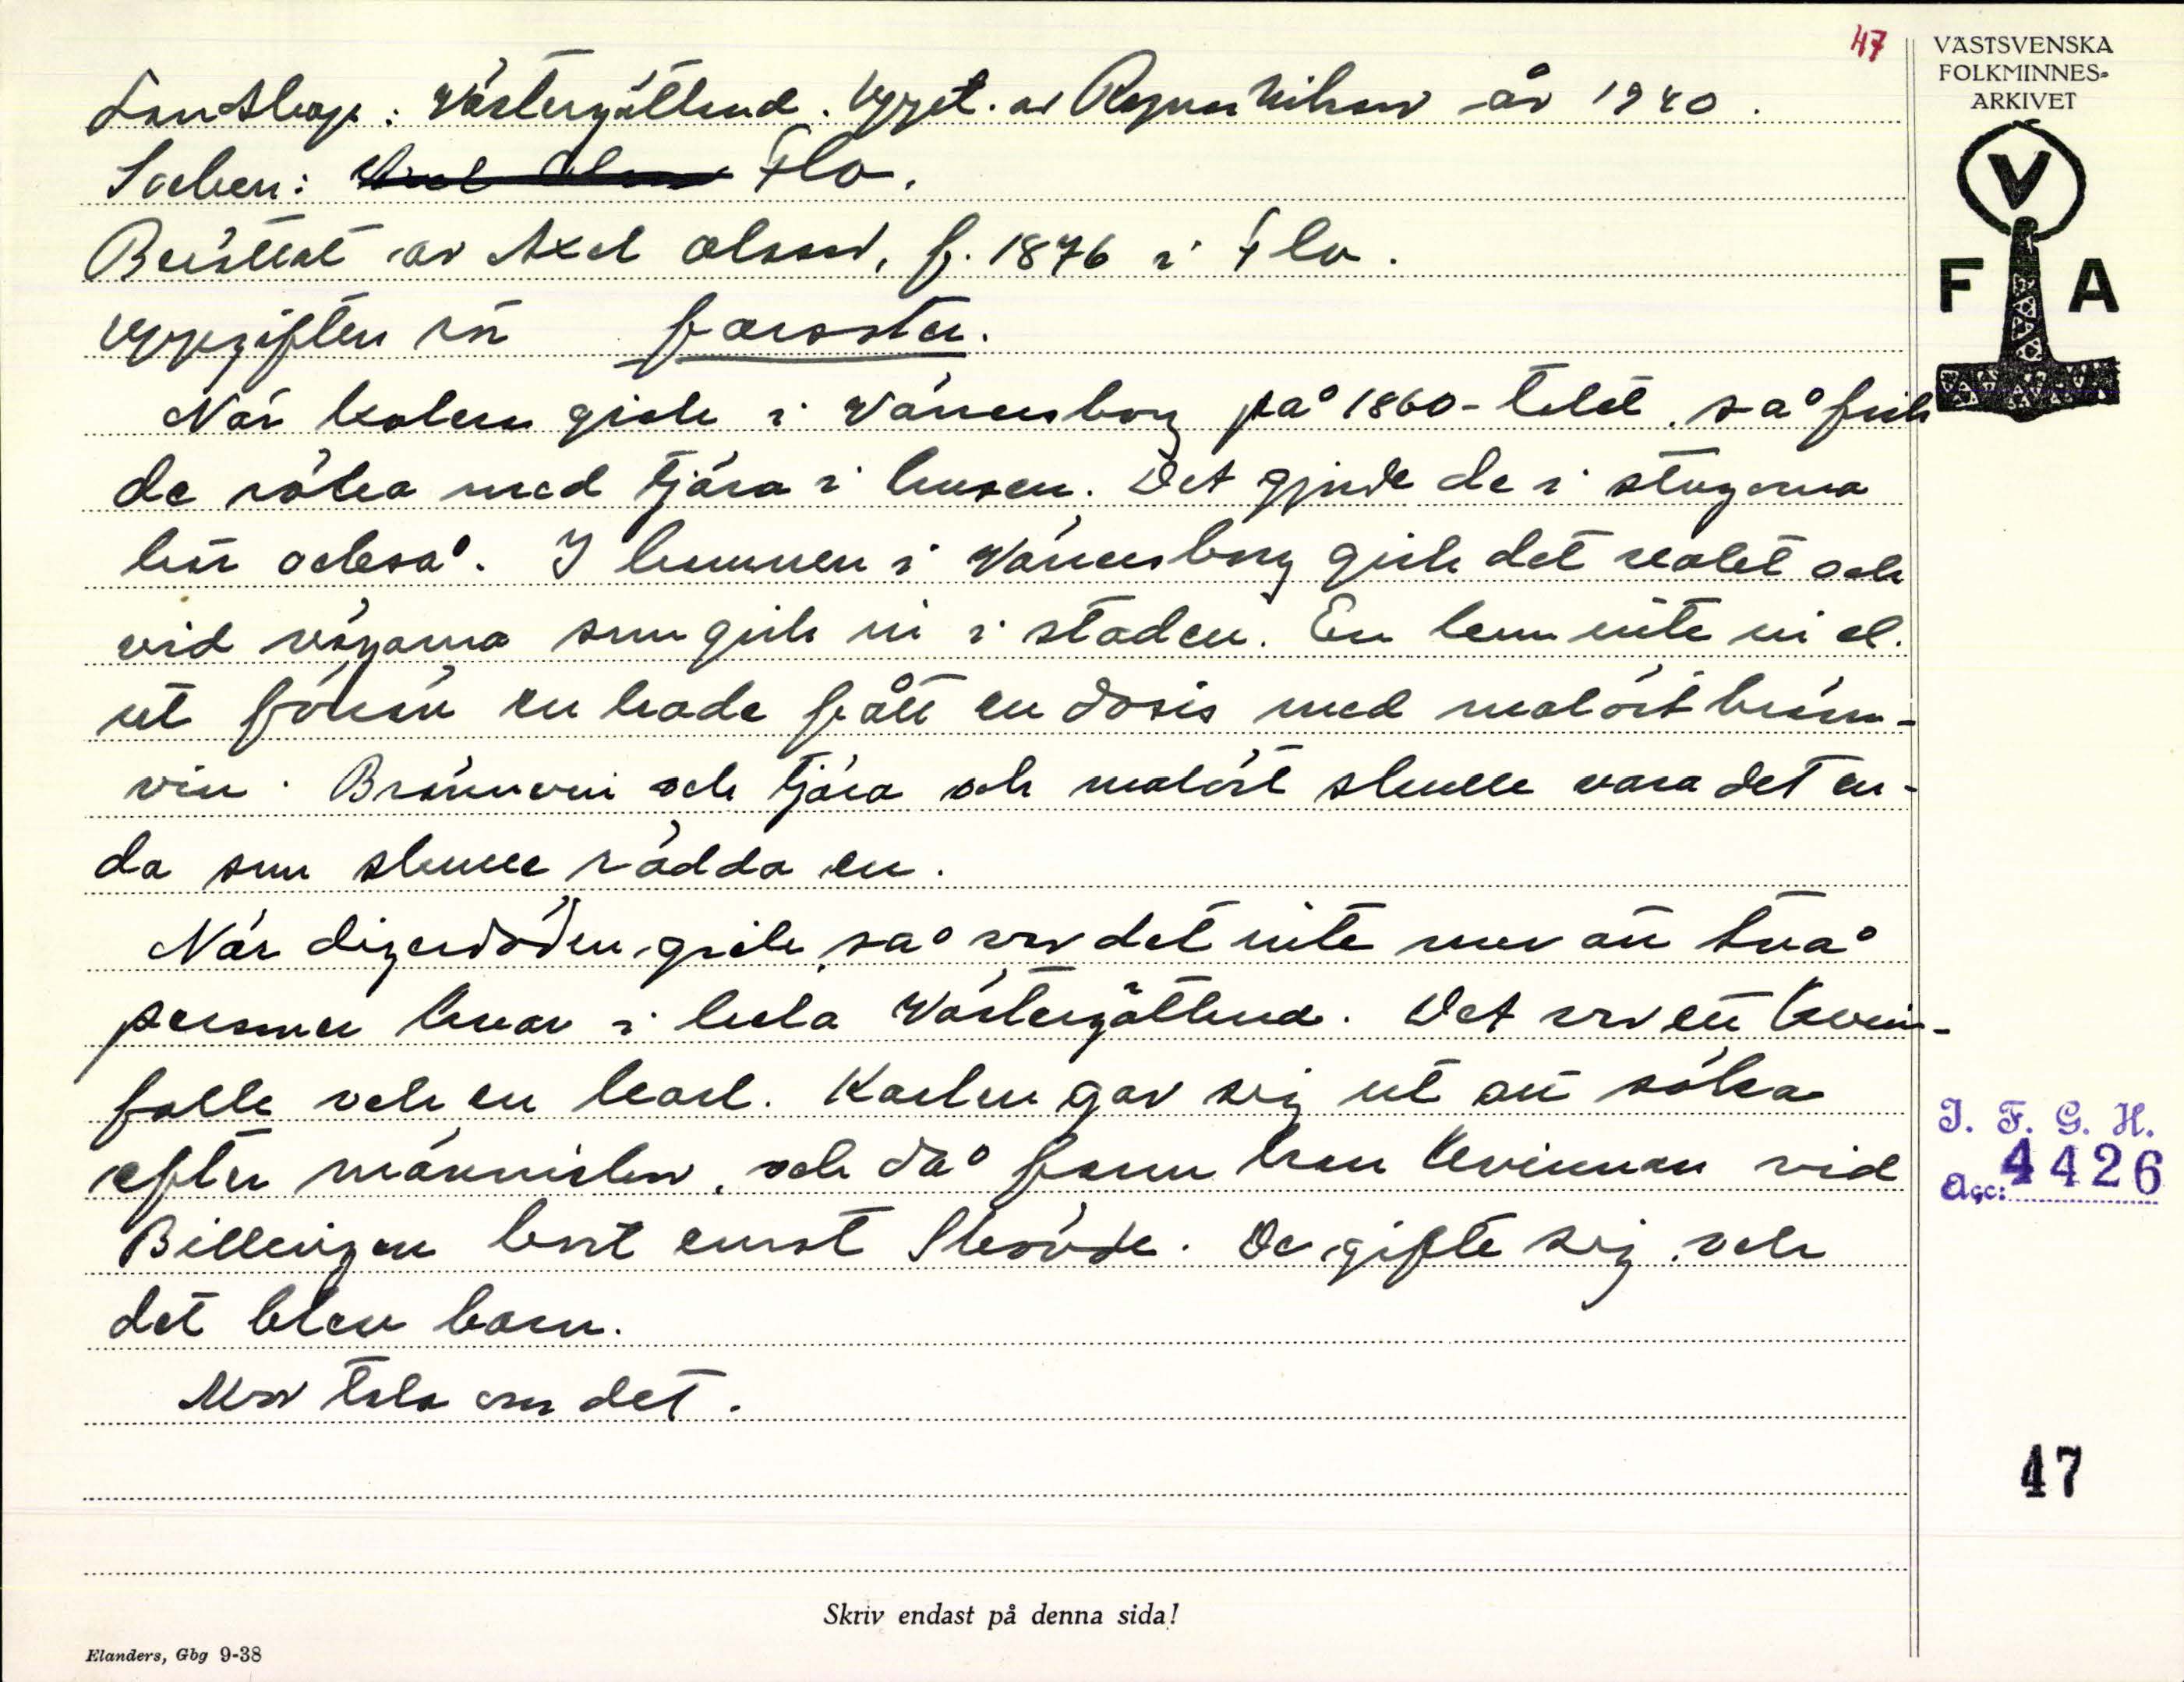 47
VÄSTSVENSKA
FOLKMINNES-
ARKIVET
V
F A
Landskap: Västergötland. Uppt. av Ragnar Nilsson år 1940.
Socken: Axel Olsson Flo.
Berättat av Axel Olsson, f. 1876 i Flo.
Uppgiften rör farsoter.
När koleran gick i Vänersborg på 1860-talet, så fick
de röka med tjära i husen. Det gjorde de i stugorna
här också. I hamnen i Vänersborg gick det vakt och
vid vägarna som gick in i staden. En kom inte in el.
ut förrän en hade fått en dosis med malört bränn-
vin. Brännvin och tjära och malört skulle vara det en-
da som skulle rädda en.
När digerdöden gick, så var det inte mer än två
personer kvar i hela Västergötland. Det var ett kvin-
folk och en karl. Karlen gav sig ut att söka
efter människor, och då fann han kvinnan vid
Billingen bort emot Skövde. De gifte sig, och
det blev barn.
Mor tala om det.
I. F. G. H.
Acc: 4426
47
Skriv endast på denna sida!
Elanders, Gbg 9-38